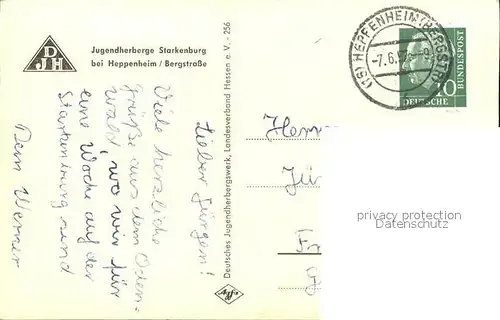 D
JH
Jugendherberge Starkenburg
bei Heppenheim / Bergstraße
Lieber Jürgen!
Viele herzliche
Grüße aus dem Oden-
wald, wo wir für
eine Woche auf der
Starkenburg sind
Dein Werner
Deutsches Jugendherbergswerk, Landesverband Hessen e.V. - 256
Agfa
(16) HEPPENHEIM (BERGSTR)
-7.6.5
10
DEUTSCHE
BUNDESPOST
Herrn
Jür
privacy protection
Datenschutz